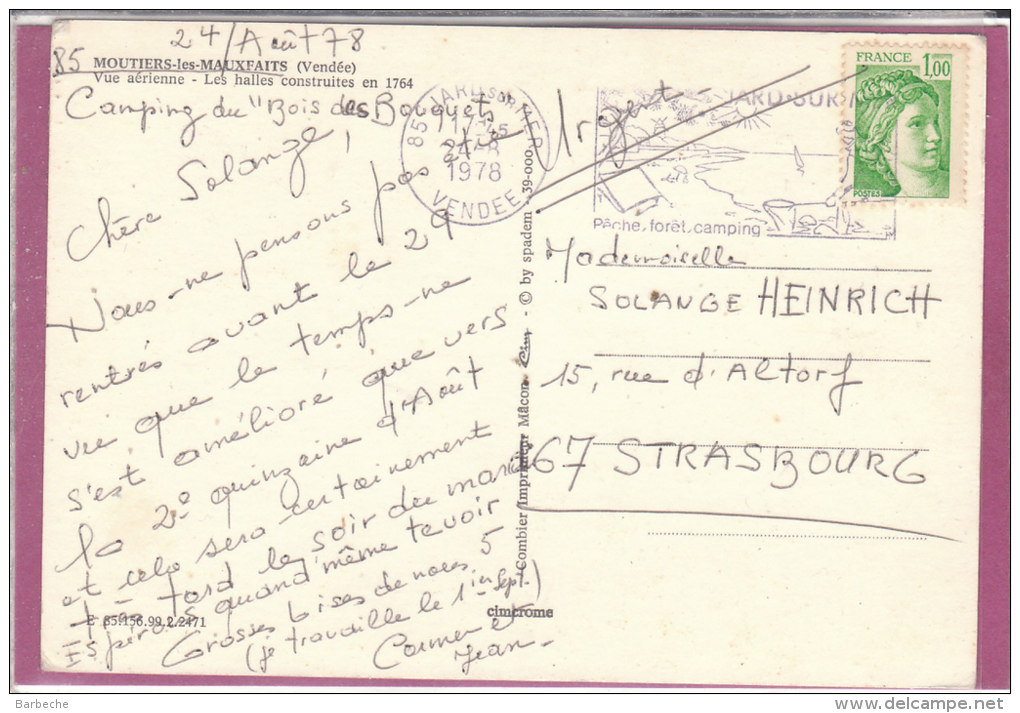 24/Août 78
85 MOUTIERS-les-MAUXFAITS (Vendée)
Vue aérienne - Les halles construites en 1764
Camping du "Bois des Bouquets
Chère Solange,
Nous-ne pensons pas
rentrés avant le 29
vue que le temps-ne
s'est amélioré que vers
la 2e quinzaine d'Août
et cela sera certainement
très tard le soir du mardi
spérons quand même te voir
Grosses bises de nous 5
(je travaille le 1er Sept.)
Carmen et
Jean-
E 85.156.99.2.2471
cimcrome
Combier Imprimeur Mâcon Cim - © by spadem 39-000
85 JARD SUR MER
17-45
24-8
1978
VENDEE
Urgent-
JARD-SUR-M
Pêche, forêt, camping
FRANCE 1,00
POSTES
Mademoiselle
SOLANGE HEINRICH
15, rue d'Altorf
67 STRASBOURG
Barbeche
delcampe.net